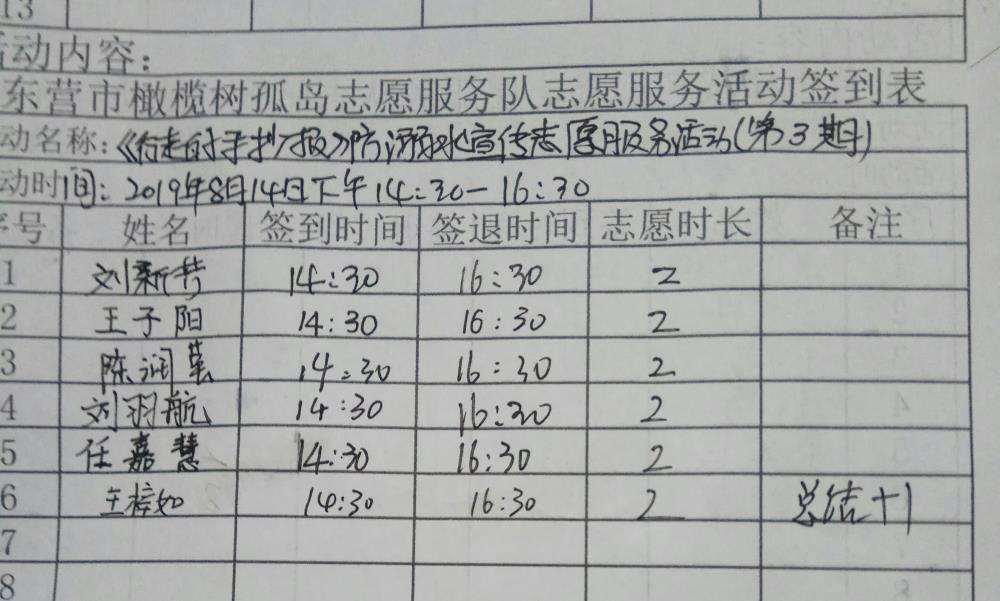 13
活动内容：
东营市橄榄树孤岛志愿服务队志愿服务活动签到表
动名称：《行走的手抄报》防溺水宣传志愿服务活动(第3期)
动时间：2019年8月14日下午14:30-16:30
序号 姓名 签到时间 签退时间 志愿时长 备注
1 刘新 14:30 16:30 2
2 王子阳 14:30 16:30 2
3 陈润 14:30 16:30 2
4 刘羽航 14:30 16:30 2
5 任嘉慧 14:30 16:30 2
6 王梓如 14:30 16:30 2 总结+1
7
8